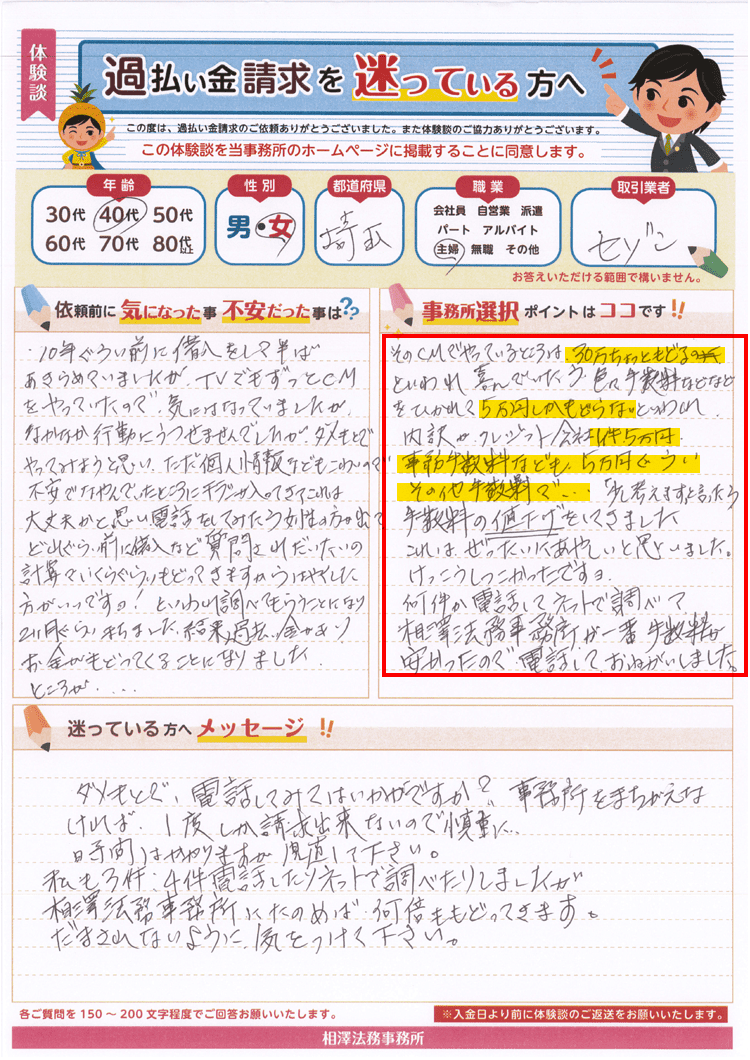 体験談
過払い金請求を迷っている方へ
この度は、過払い金請求のご依頼ありがとうございました。また体験談のご協力ありがとうございます。
この体験談を当事務所のホームページに掲載することに同意します。
年齢
30代 40代 50代
60代 70代 80代以上
性別
男・女
都道府県
埼玉
職業
会社員 自営業 派遣
パート アルバイト
主婦 無職 その他
取引業者
セゾン
お答えいただける範囲で構いません。
依頼前に気になった事 不安だった事は??
・10年ぐらい前に借入をして半ば
あきらめていましたが、TVでもずっとCM
をやっていたので、気にはなっていましたが
なかなか行動にうつせませんでしたが、ダメもとで
やってみようと思い、ただ個人情報などもこわいので
不安でなやんでいたところにチラシが入ってきてこれは
大丈夫かと思い電話をしてみたら女性の方が出て
どれぐらい前に借入など質問されだいたいの
計算でいくらぐらいもどってきますからはやくした
方がいいですよ!といわれ調べてもらうことになり
2ヶ月ぐらいまちました。結果過払い金があり
お金がもどってくることになりました
ところが....
事務所選択 ポイントは ココです!!
そのCMでやっているところは、30万ちょっともどる
といわれ 喜んでいたら 色々手数料などなど
をひかれて5万円しかもどらないといわれ
内訳が クレジット会社1件5万円.
事務手数料なども、5万円ぐらい
その他手数料で... 「少し考えますと言ったら
手数料の値下げをしてきました
これは、ぜったいにあやしいと思いました。
けっこうしつこかったですヨ
何件か電話して ネットで調べて
相澤法務事務所が一番 手数料が
安かったので、電話して、おねがいしました。
迷っている方へメッセージ!!
ダメもとで、電話してみてはいかがですか? 事務所をまちがえな
ければ、1度しか請求出来ないので慎重に..
時間はかかりますが 見直して下さい。
私も3件.4件電話したりネットで調べたりしましたが
相澤法務事務所にたのめば 何倍ももどってきます。
だまされないように、気をつけて下さい。
各ご質問を150~200文字程度でご回答お願いいたします。
※入金日より前に体験談のご返送をお願いいたします。
相澤法務事務所